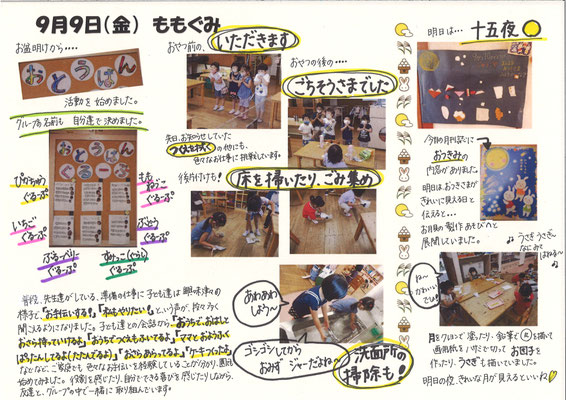 9月9日(金) ももぐみ
お盆明けから‥‥
おとうばん
活動を始めました。
グループの名前も 自分達で決めました。
おとうばん
ぐるーぷ
ぴかちゅう
ぐるーぷ
もも
ねこ
ぐるーぷ
いちご
ぐるーぷ
ぶどう
ぐるーぷ
ぶるーべりー
ぐるーぷ
すみっこぐらし
ぐるーぷ
普段、先生達がしている、準備の仕事に子ども達は興味津々の
様子で、"お手伝いする!" "私もやりたい!"という声が、段々多く
聞こえるようになりました。子ども達との会話から"おうちで、おはしと
おさら持っていけるよ" "おうちでつくえもふいてるよ" "ママとおようふく
ぱたんしてるよ(たたんでるよ)" "おさらあらってるよ" "ケーキつくったよ"
などなど、ご家庭でも色々なお手伝いを経験していることが分かり、園でも
始めてみました。役割を感じたり、自分でできる喜びを感じたりしながら、
友達と、グループの中で一緒に取り組んでいます。
おやつ前の、いただきます
おやつの後の‥‥
ごちそうさまでした
先日、お知らせしていた
つくえ拭くの他にも、
色々なお仕事に挑戦しています。
後片付けも!
床を掃いたり、ごみ集め
あわあわ
しょう〜
ゴシゴシしてから
おみず ジャーだよね〜
洗面所の
掃除も!
明日は‥‥ 十五夜
今月の月刊誌に
おつきみの
内容がありました。
明日は、おつきさまが
きれいに見える日と
伝えると‥‥
お月見の製作あそびへと
展開していました。
うさぎ うさぎ〜
なにみて
はねる〜
ね〜
かわいい
でしょ!
月をクレヨンで塗ったり、鉛筆で
を描いて
画用紙をハサミで切って お団子を
作ったり、うさぎも描いていました。
明日の夜、きれいな月が見えるといいね